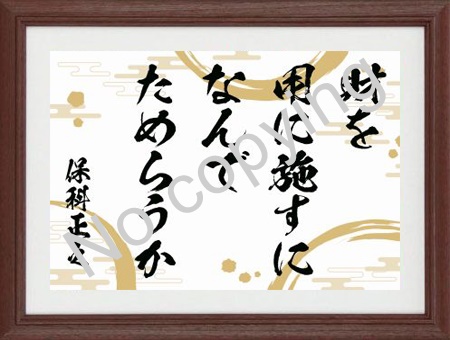 財を
用に施すに
なんで
ためらうか
保科正之
No copying